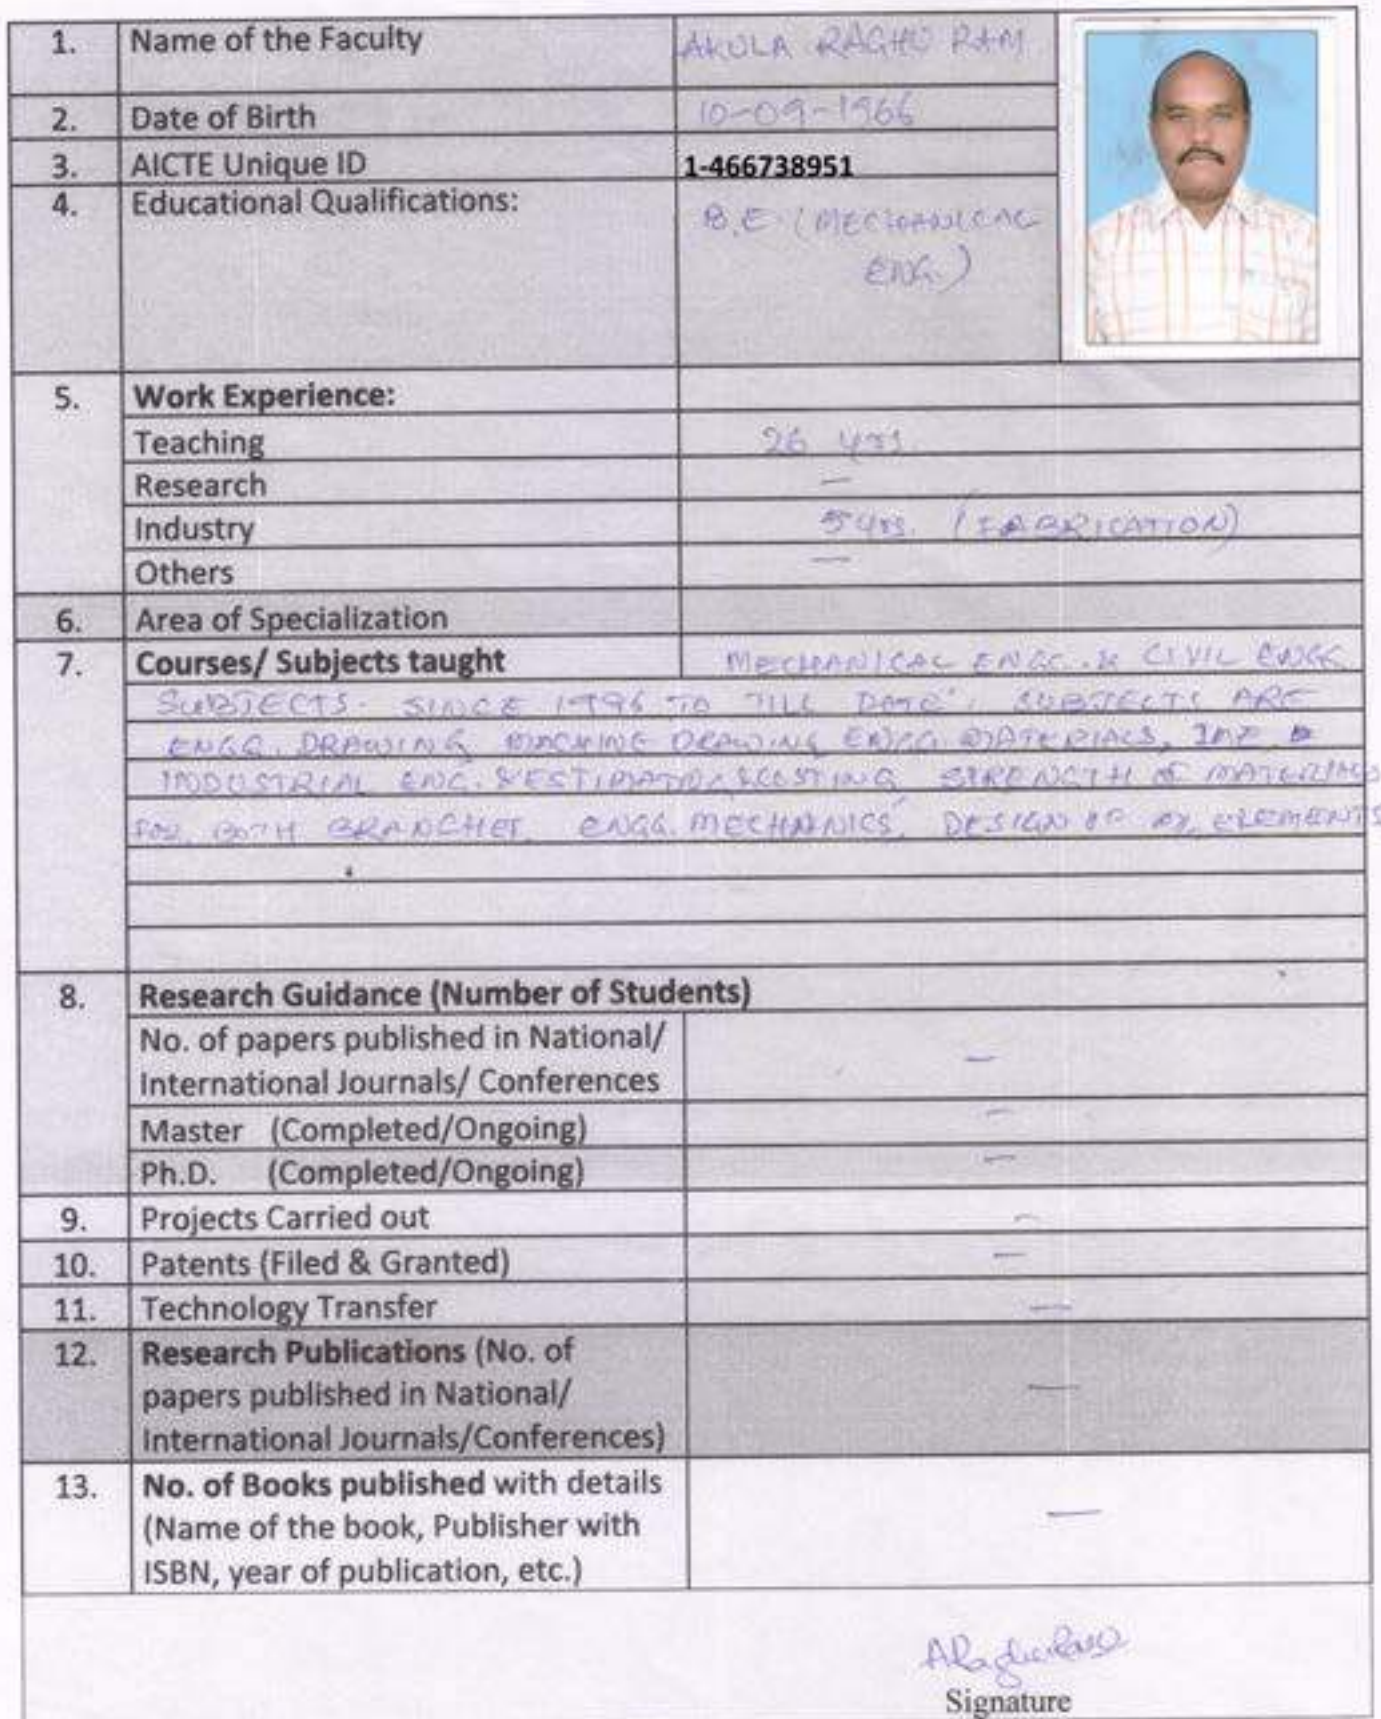 1. Name of the Faculty AKULA RAGHU RAM
2. Date of Birth 10-09-1966
3. AICTE Unique ID 1-466738951
4. Educational Qualifications: B.E (MECHANICAL
ENG.)
5. Work Experience:
Teaching 26 yrs.
Research —
Industry 5 yrs. (FABRICATION)
Others —
6. Area of Specialization
7. Courses/ Subjects taught MECHANICAL ENGG. & CIVIL ENGG
SUBJECTS. SINCE 1996 TO TILL DATE, SUBJECTS ARE
ENGG. DRAWING MACHINE DRAWING ENGG. MATERIALS,
INDUSTRIAL ENG. & ESTIMATING & COSTING STRENGTH OF MATERIALS
FOR BOTH BRANCHES, ENGG. MECHANICS, DESIGN OF ELEMENTS
8. Research Guidance (Number of Students)
No. of papers published in National/
International Journals/ Conferences —
Master (Completed/Ongoing) —
Ph.D. (Completed/Ongoing) —
9. Projects Carried out —
10. Patents (Filed & Granted) —
11. Technology Transfer —
12. Research Publications (No. of
papers published in National/ —
International Journals/Conferences)
13. No. of Books published with details
(Name of the book, Publisher with —
ISBN, year of publication, etc.)
ARaghuRam
Signature